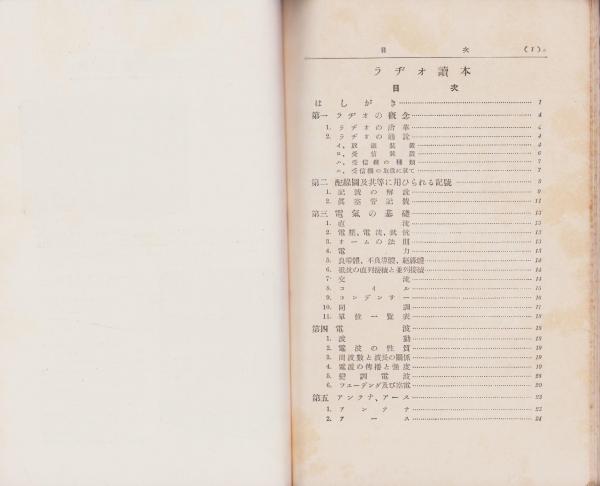 目次 (1)
ラヂオ讀本
目次
はしがき 1
第一 ラヂオの概念 4
1. ラヂオの沿革 4
2. ラヂオの通說 4
イ、放送裝置 4
ロ、受信裝置 6
ハ、受信機の種類 7
ニ、受信機の取扱に就て 7
第二 配線圖及其等に用ひられる記號 8
1. 記號の解說 9
2. 眞空管記號 11
第三 電氣の基礎 13
1. 直流 13
2. 電壓、電流、抵抗 13
3. オームの法則 13
4. 電力 13
5. 良導體、不良導體、絕緣體 14
6. 抵抗の直列接續と並列接續 14
7. 交流 14
8. コイル 15
9. コンデンサー 16
10. 同調 17
11. 單位一覽表 18
第四 電波 18
1. 波動 18
2. 電波の性質 19
3. 周波數と波長の關係 19
4. 電波の傳播と强度 19
5. 變調電波 20
6. フエーデング及び空電 20
第五 アンテナ、アース 22
1. アンテナ 22
2. アース 24